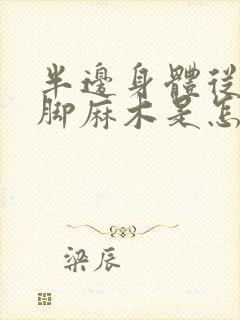 半邊身體從
脚麻木是怎
梁辰